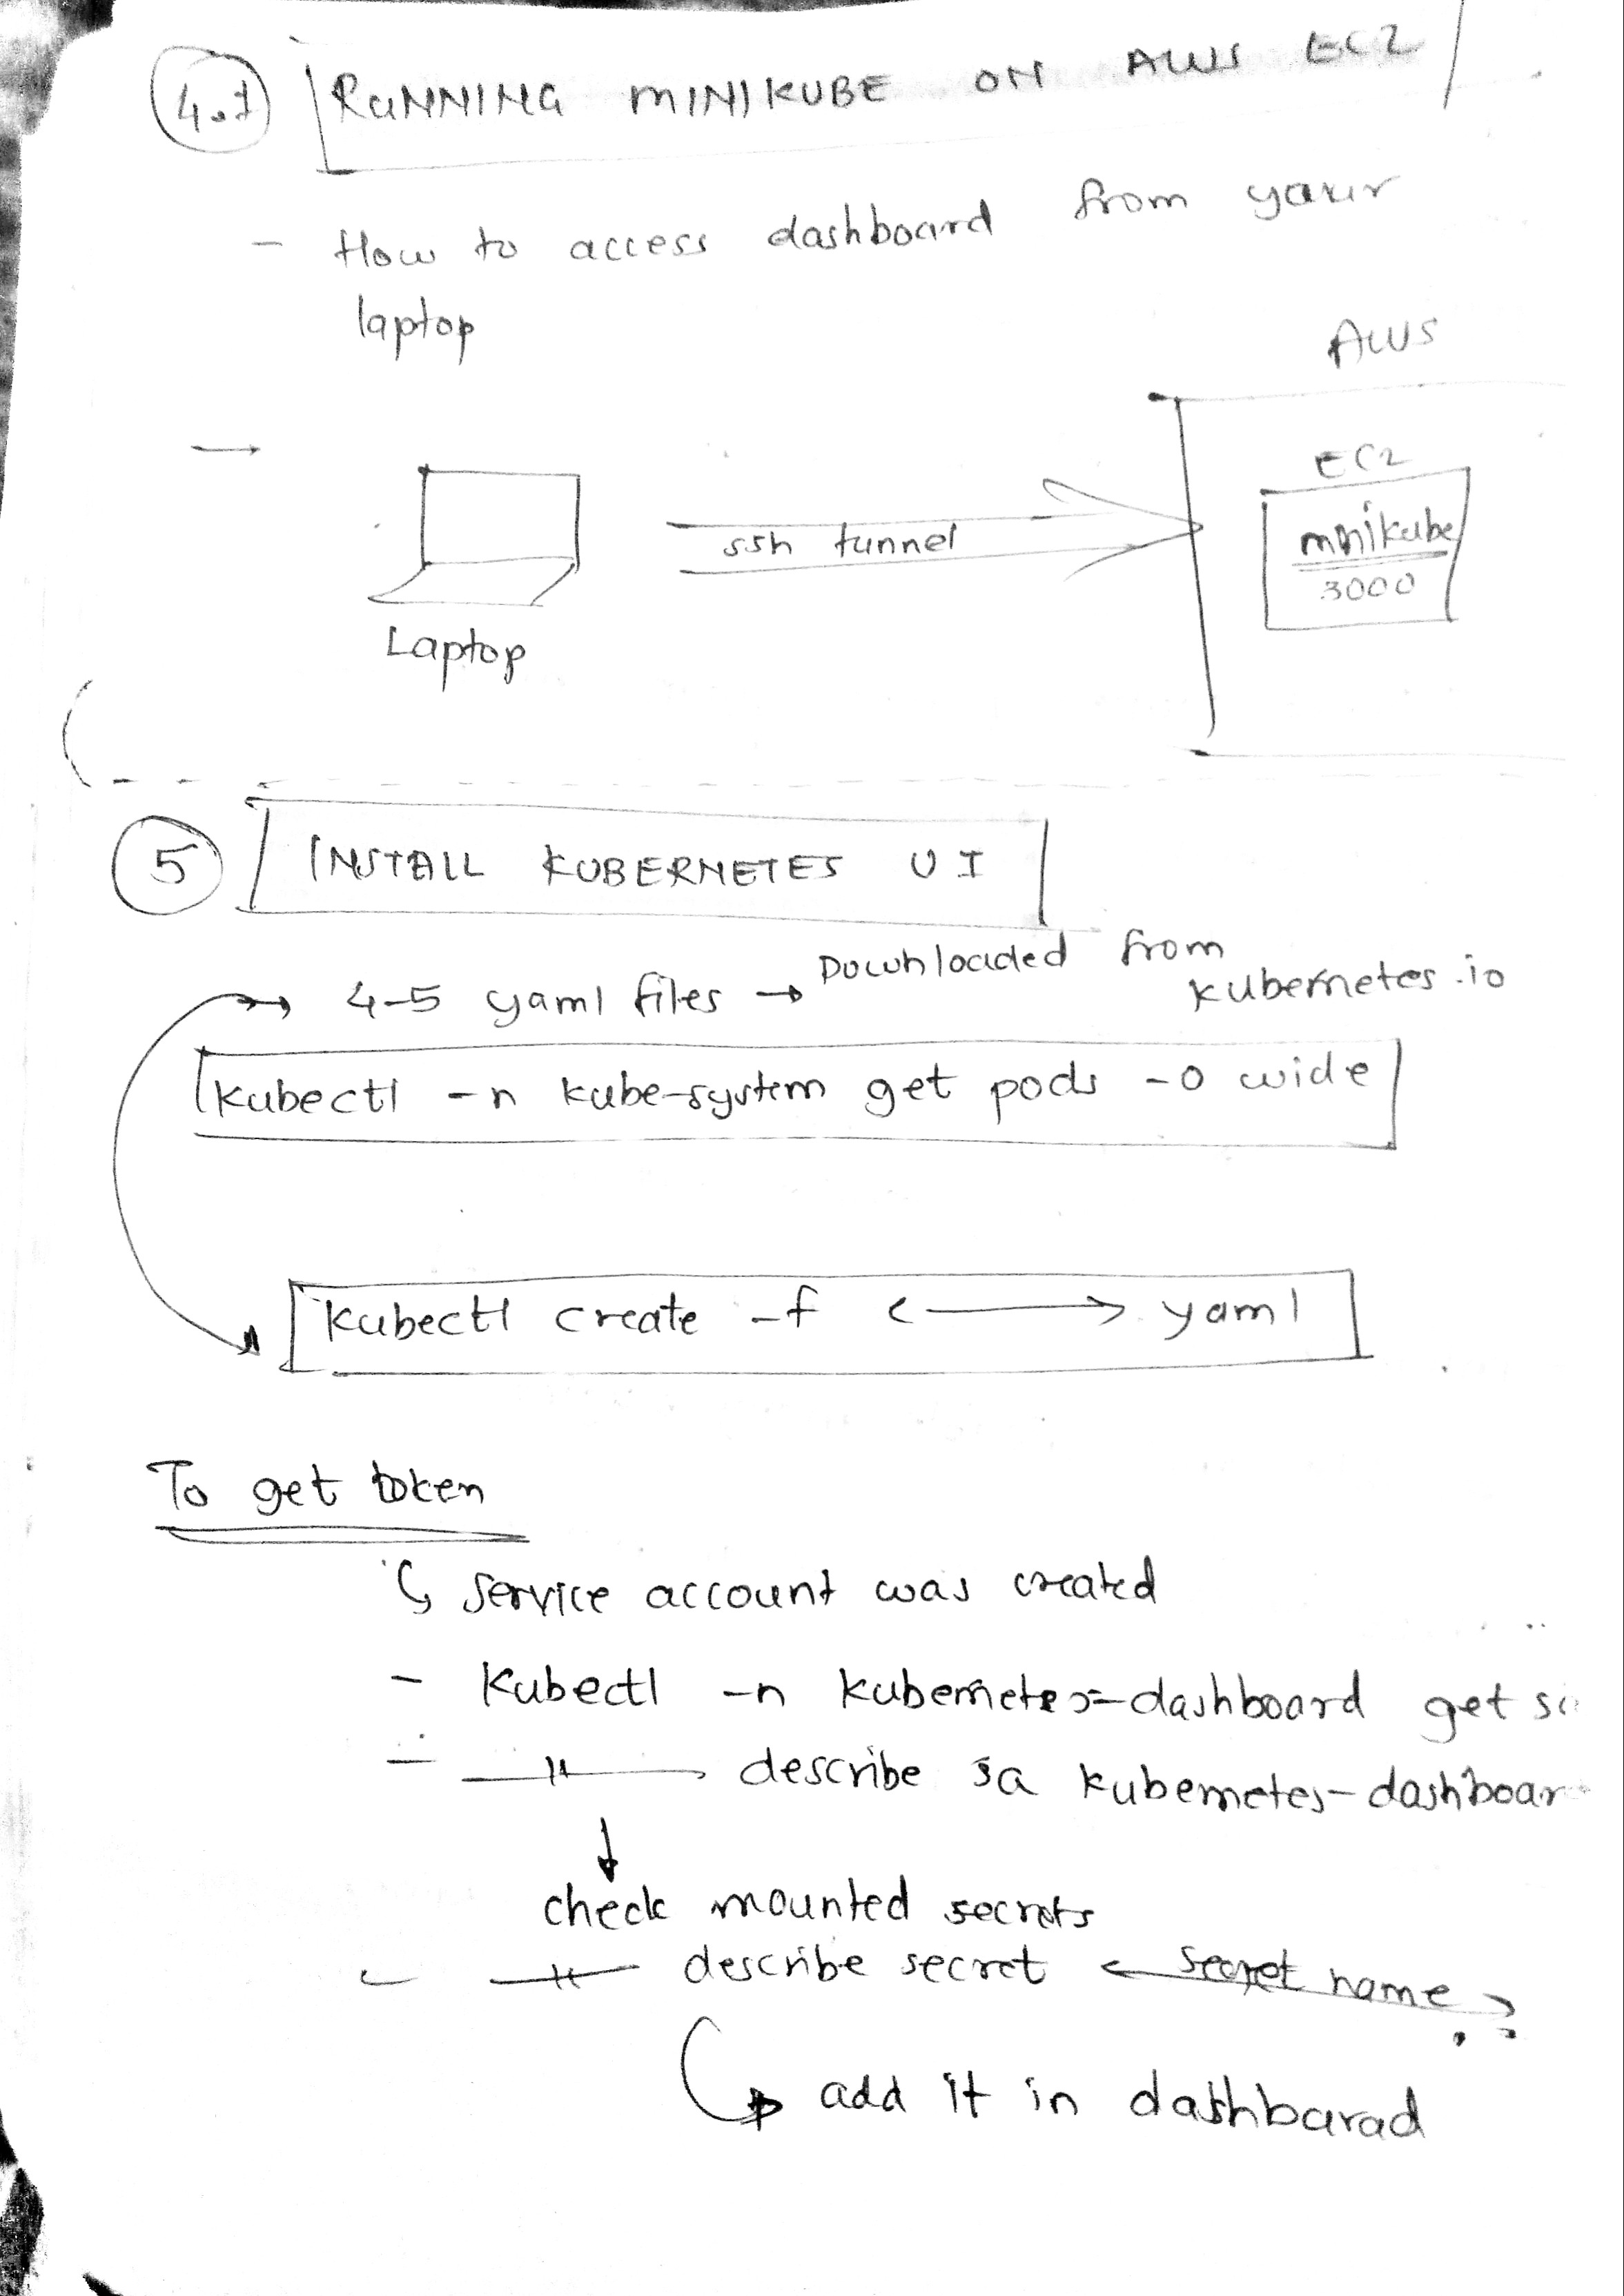 4.1 RUNNING MINIKUBE ON AWS EC2
- How to access dashboard from your
laptop
AWS
EC2
minikube
3000
ssh tunnel
Laptop
5 INSTALL KUBERNETES UI
→ 4-5 yaml files → Downloaded from
kubernetes.io
kubectl -n kube-system get pods -o wide
kubectl create -f <⟶> yaml
To get token
↳ service account was created
- kubectl -n kubernetes-dashboard get sa
- —"— describe sa kubernetes-dashboar
↓
check mounted secrets
- —"— describe secret <secret name>
↳ add it in dashbarad